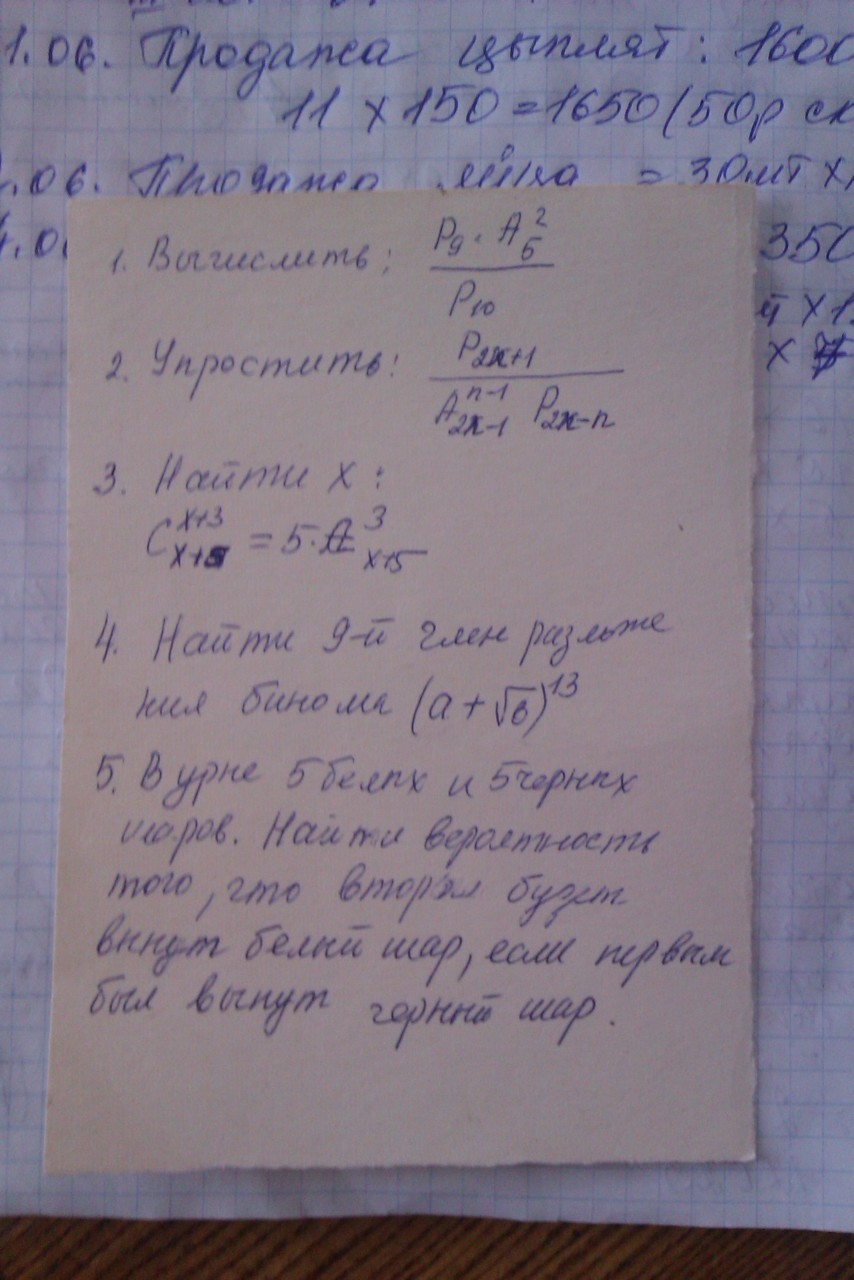 1.06. Продажа цыплят: 1600
11 x 150 = 1650 (50р ск
.06. Продажа = 30шт x
4.0
350
x 1
x
1. Вычислить: P₉ · A₆²
P₁₀
2. Упростить: P₂ₖ₊₁
A₂ₖ₋₁ⁿ⁻¹ P₂ₖ₋ₙ
3. Найти x:
Cₓ₊₅ˣ⁺³ = 5·Aₓ₊₅³
4. Найти 9-й член разложе
ния бинома (a + √b)¹³
5. В урне 5 белых и 5 черных
шаров. Найти вероятность
того, что вторым будет
вынут белый шар, если первым
был вынут черный шар.